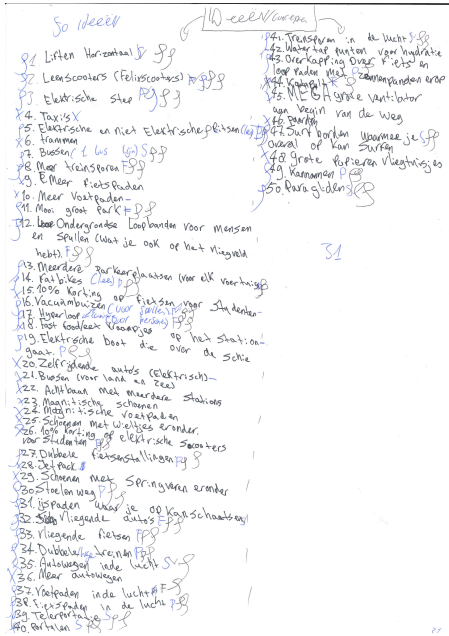 50 ideeën
IDeeën/concepten
1 Liften Horizontaal S
2. Leenscooters (Felixscooters)
3. Elektrische Step
4. Taxi's
5. Elektrische en niet Elektrische fietsen
6. trammen
7. Bussen (1 bus lijn) S
8. Meer treinsporen F
9. Meer Fietspaden
10. Meer Voetpaden
11. Mooi groot Park
12. Ondergrondse Loopbanden voor mensen
en spullen (wat je ook op het vliegveld
hebt). F
13. Meerdere Parkeerplaatsen (voor elk voertuig)
14. Fatbikes
15. 10% Korting op fietsen voor Studenten
16. Vacuümbuizen (voor spullen)
17. Hyperloop (voor personen)
18. Fast food/eet kraampjes op het station
19. Elektrische boot die over de Schie
gaat. P
20. Zelfrijdende auto's (elektrisch)
21. Bussen (voor land en zee)
22. Achtbaan met meerdere Stations
23. Magnitische schoenen
24. Magnitische voetpaden
25. Schoenen met wieltjes eronder.
26. 10% Korting op elektrische Scooters
voor Studenten
27. Dubbele fietsenstallingen F
28. Jetpack
29. Schoenen met Springveren eronder
30. Stoelen weg P
31. ijspaden waar je op Kan schaatsen
32. Vliegende auto's F
33. Vliegende fietsen F
34. Dubbele treinen F
35. Autowegen in de lucht S
36. Meer autowegen
37. Voetpaden in de lucht F
38. Fietspaden in de lucht P
39. Teleportatie S
40. Portalen S
41. Treinsporen in de lucht S
42. Watertap punten voor hydratie
43. Overkapping over fiets en
loop paden met zonnepanelen erop
44. Katapult
45. MEGA grote ventilator
aan begin van de weg
46. Paarden
47. Surf borden waarmee je S
overal op Kan Surfen
48. grote Papieren vliegtuigjes
49. Kannonnen P
50. Paragliden S
31